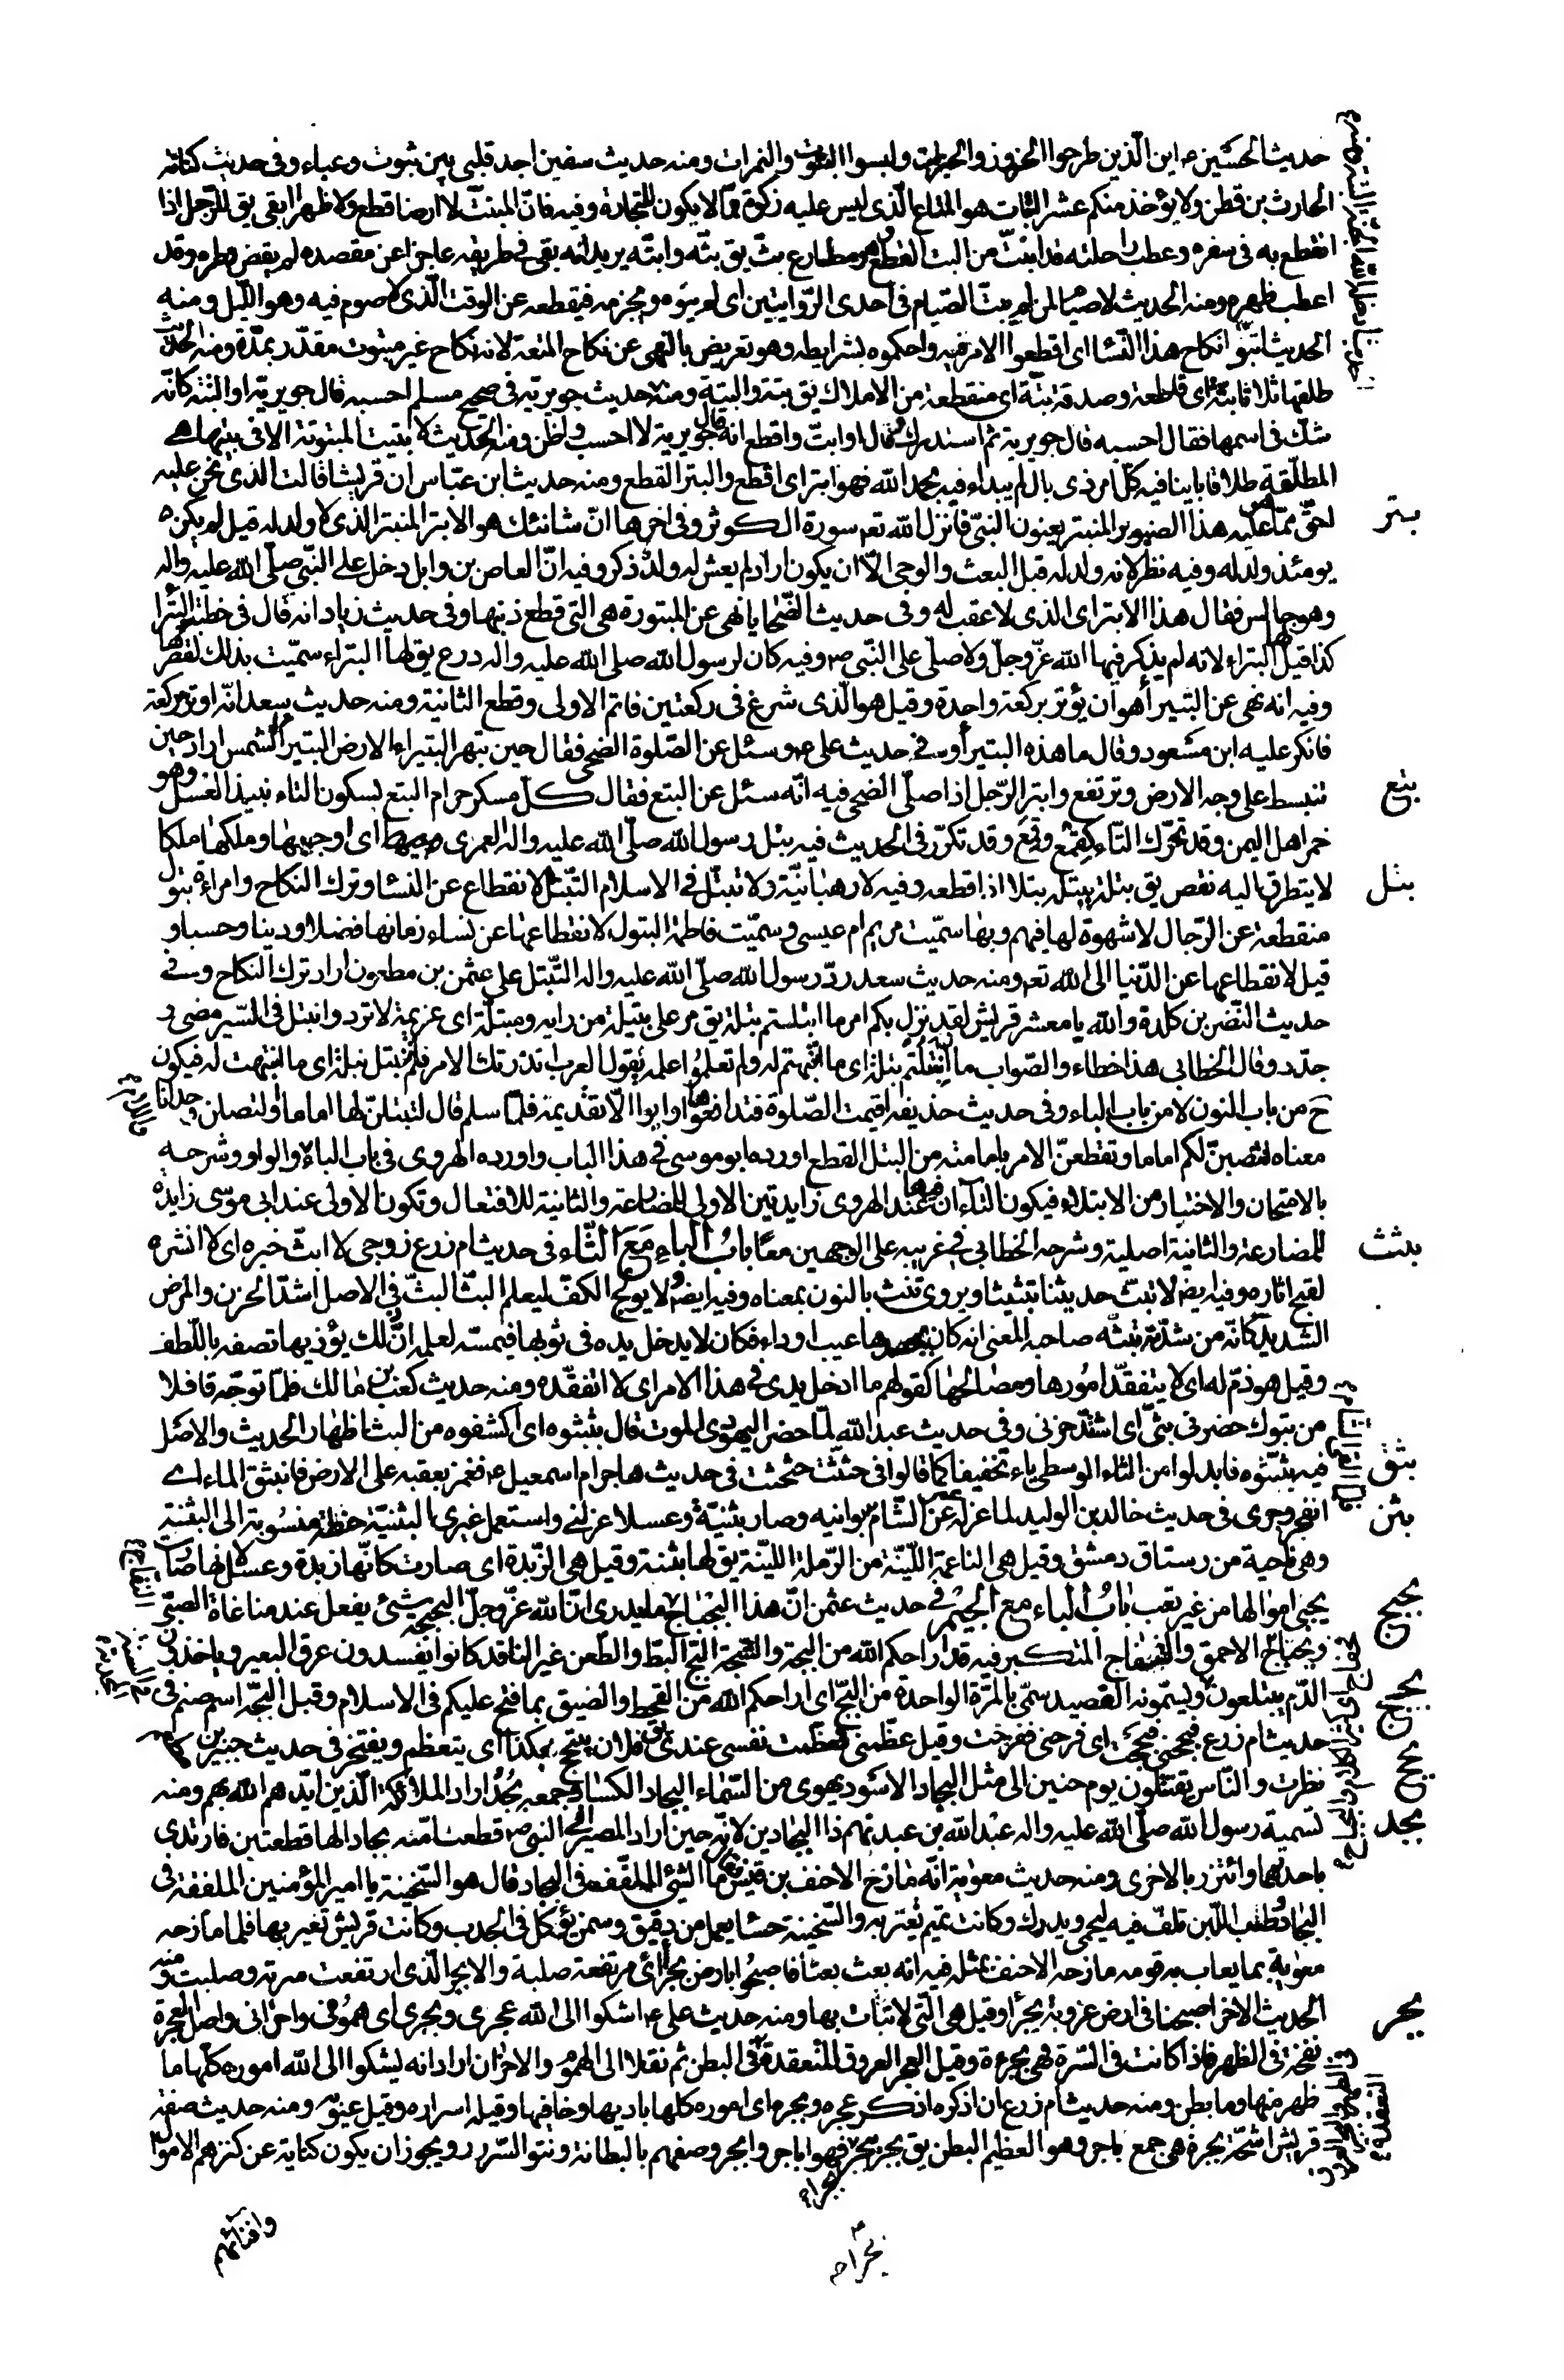 حديث الحسين ع اين الذين طرحوا الخزوز والحبرات ولبسوا البتوت والنمرات ومنه حديث سفين اجد قلبي بين بتوت وعباء وفى حديث كتابه
الحارث بن قطن ولا يؤخذ منكم عشر البتات هو المتاع الذى ليس عليه زكوة مما لا يكون للتجارة وفيه فان المنبت لا ارضا قطع ولا ظهرا ابقى يق للرجل اذا
انقطع به فى سفره وعطبت راحلته قد انبت من البت القطع وهو مطاوع بت يق بته وابته يريد انه بقى فى طريقه عاجزا عن مقصده لم يقض وطره وقد
اعطب ظهره ومنه الحديث لا صيام لمن لم يبت الصيام فى احدى الروايتين اى لم ينوه ويجزمه فيقطعه عن الوقت الذى لا صوم فيه وهو الليل ومنه
الحديث ابتوا نكاح هذا النسا اى اقطعوا الامر فيه واحكموه بشرايطه وهو تعريض بالنهى عن نكاح المتعة لانه نكاح غير مبتوت مقدر بمدة ومنه الحديث
طلقها ثلاثا بتة اى قاطعة وصدقة بتة اى منقطعة من الاملاك يق بتة والبتة ومنه حديث جويرية فى صحيح مسلم احسبه قال جويرية او البتة كانه
شك فى اسمها فقال احسبه قال جويرية ثم استدرك فقال او ابت واقطع انه قال جويرية لا احسب واظن ومنه الحديث لا تبيت المبتوتة الا فى بيتها هى
المطلقة طلاقا باينا فيه كل امر ذى بال لم يبداء فيه بحمد الله فهو ابتر اى اقطع والبتر القطع ومنه حديث ابن عباس ان قريشا قالت الذى نحن عليه
بتر
احق مما عليه هذا الصنبور المنبتر يعنون النبى فانزل الله تعم سورة الكوثر وفى اخرها ان شانئك هو الابتر المنبتر الذى لا ولد له قيل لم يكن
يومئذ ولد له وفيه نظر لانه ولد له قبل البعث والوحى الا ان يكون اراد لم يعش له ولد ذكر وفيه ان العاص بن وايل دخل على النبى صلى الله عليه واله
وهو جالس فقال هذا الابتر اى الذى لا عقب له وفى حديث الضحايا نهى عن المبتورة هى التى قطع ذنبها وفى حديث زياد انه قال فى خطبته البتراء
كذا قيل لها البتراء لانه لم يذكر فيها الله عز وجل ولا صلى على النبى ص وفيه كان لرسول الله صلى الله عليه واله درع يق لها البتراء سميت بذلك لقصرها
وفيه انه نهى عن البتيراء هو ان يؤتر بركعة واحدة وقيل هو الذى شرع فى ركعتين فاتم الاولى وقطع الثانية ومنه حديث سعد انه اوتر بركعة
فانكر عليه ابن مسعود وقال ما هذه البتيراء وفى حديث على ع وسئل عن الصلوة الضحى فقال حين تبهر البتيراء الارض البتيراء الشمس اراد حين
بتع
تنبسط على وجه الارض وترتفع وابتر الرجل اذا صلى الضحى فيه انه سئل عن البتع فقال كل مسكر حرام البتع بسكون التاء نبيذ العسل وهو
خمر اهل اليمن وقد تحرك التاء كقمع وقمع وقد تكرر فى الحديث فيه بتل رسول الله صلى الله عليه واله العمرى اى اوجبها وملكها ملكا
بتل
لا يتطرق اليه نقص يق بتله يبتله بتلا اذا قطعه وفيه لا رهبانية ولا تبتل فى الاسلام التبتل الانقطاع عن النسا وترك النكاح وامراءة بتول
منقطعة عن الرجال لا شهوة لها فيهم وبها سميت مريم ام عيسى وسميت فاطمة البتول لانقطاعها عن نساء زمانها فضلا ودينا وحسبا و
قيل لانقطاعها عن الدنيا الى الله تعم ومنه حديث سعد رد رسول الله صلى الله عليه واله التبتل على عثمن بن مظعون اراد ترك النكاح وفى
حديث النضر بن كلدة والله يا معشر قريش لقد نزل بكم امر ما ابتلتم بتله يق مر على بتيلة من رايه ومبتلة اى عزيمة لا ترد وانبتل فى السير مضى و
جدد وقال الخطابى هذا خطاء والصواب ما انتبلتم بتله اى ما انتبهتم له ولم تعلموا علمه يقول العرب انذرتك الامر فلم تنتبل نبله اى ما انتبهت له فيكون
ح من باب النون لا من باب الباء وفى حديث حذيفة اقيمت الصلوة فتدافعوها وابوا الا تقديمه فلما سلم قال لتبتلن لها اماما او لتصلن وحدانا
معناه لتنصبن لكم اماما وتقطعن الامر بامامته من البتل القطع اورده ابو موسى فى هذا الباب واورده الهروى فى باب الباء والواو وشرحه
بالامتحان والاختبار من الابتلاء فيكون التاآن فيها عند الهروى زايدتين الاولى للمضارعة والثانية للافتعال وتكون الاولى عند ابى موسى زايدة
بثث
للمضارعة والثانية اصلية وشرحه الخطابى فى غريبه على الوجهين معا باب الباء مع الثاء فى حديث ام زرع زوجى لا ابث خبره اى لا انشره
لقبح اثاره وفيه ايض لا تبث حديثنا تبثيثا ويروى تنث بالنون بمعناه وفيه ايض ولا يولج الكف ليعلم البث البث فى الاصل اشد الحزن والمرض
الشديد كانه من شدته تبثه صاحبه المعنى انه كان بجسدها عيب او داء فكان لا يدخل يده فى ثوبها فيمسه لعلمه ان ذلك يؤذيها تصفه باللطف
وقيل هو ذم له اى لا يتفقد امورها ومصالحها كقولهم ما ادخل يدى فى هذا الامر اى لا اتفقده ومنه حديث كعب بن مالك فلما توجه قافلا
من تبوك حضرنى بثى اى اشتد حزنى وفى حديث عبد الله لما حضر اليهودى الموت قال بثبثوه اى اكشفوه من البث اظهار الحديث والاصل
بثق
فيه بثثوه فابدلوا من الثاء الوسطى باء تخفيفا كما قالوا فى حثثت حثحثت فى حديث هاجر ام اسمعيل ع فغمز بعقبه على الارض فانبثق الماء اى
بثن
انفجر وجرى فى حديث خالد بن الوليد لما عزله عمر عن الشام بوانيه وصار بثنية وعسلا عزلنى واستعمل غيرى البثنية حنطة منسوبة الى البثنة
وهى ناحية من رستاق دمشق وقيل هى الناعمة اللينة من الرملة اللينة يق لها بثنة وقيل هى الزبدة اى صارت كانها زبدة وعسل لانها صارت
بجبج
يجبى اموالها من غير تعب باب الباء مع الجيم فى حديث عثمن ان هذا البجباج ما يدرى ان الله عز وجل البجبجة شئ يفعل عند مناغاة الصبى
وبجباج الاحمق والنفاج المتكبر فيه قد اراحكم الله من البجة والسجة البج البط والطعن غير النافذ كانوا يفسدون عرق البعير وياخذون
بجج
الدم يبتلعون ويسمونه الفصيد سمى بالمرة الواحدة من البج اى اراحكم الله من القحط والضيق بما فتح عليكم فى الاسلام وقيل البجة اسم صنم فى
بجح
حديث ام زرع بجحنى فبجحت اى فرحنى ففرحت وقيل عظمنى فعظمت نفسى عندى يق فلان يتبجح بكذا اى يتعظم ويفتخر فى حديث جبير بن
بجد
نظرت والناس يقتتلون يوم حنين الى مثل البجاد الاسود يهوى من السماء البجاد الكساء وجمعه بجد اراد الملائكة الذين ايدهم الله بهم ومنه
تسمية رسول الله صلى الله عليه واله عبد الله بن عبد نهم ذا البجادين لانه حين اراد المصير الى النبى ص قطعت امه بجادا لها قطعتين فارتدى
باحديهما وائتزر بالاخرى ومنه حديث معوية انه مازح الاحنف بن قيس ما الشئ الملفف فى البجاد قال هو السخينة يا امير المؤمنين الملفف فى
البجاد وطب اللبن تلف فيه ليحمى ويدرك وكانت تميم تعير به والسخينة حسا يعمل من دقيق وسمن يؤكل فى الجدب وكانت قريش تعير بها فلما مازحه
معوية بما يعاب به قومه مازحه الاحنف بمثله فيه انه بعث بعثا فاصبحوا بارض بجراء اى مرتفعة صلبة والابجر الذى ارتفعت سرته وصلبت ومنه
بجر
الحديث الاخر اصبحنا فى ارض عزوبة بجراء وقيل هى التى لا نبات بها ومنه حديث على ع اشكوا الى الله عجرى وبجرى اى همومى واحزانى واصل العجرة
نفخة فى الظهر فاذا كانت فى السرة فهى بجرة وقيل العجر العروق المنعقدة فى البطن ثم نقلا الى الهموم والاحزان اراد انه يشكوا الى الله اموره كلها ما
ظهر منها وما بطن ومنه حديث ام زرع ان اذكره اذكر عجره وبجره اى اموره كلها باديها وخافيها وقيل اسراره وقيل عيوبه ومنه حديث صفة
قريش اشحة بجرة هى جمع باجر وهو العظيم البطن يق بجر يبجر فهو باجر وابجر وصفهم بالبطانة ونتو السرر ويجوز ان يكون كناية عن كنزهم الاموال